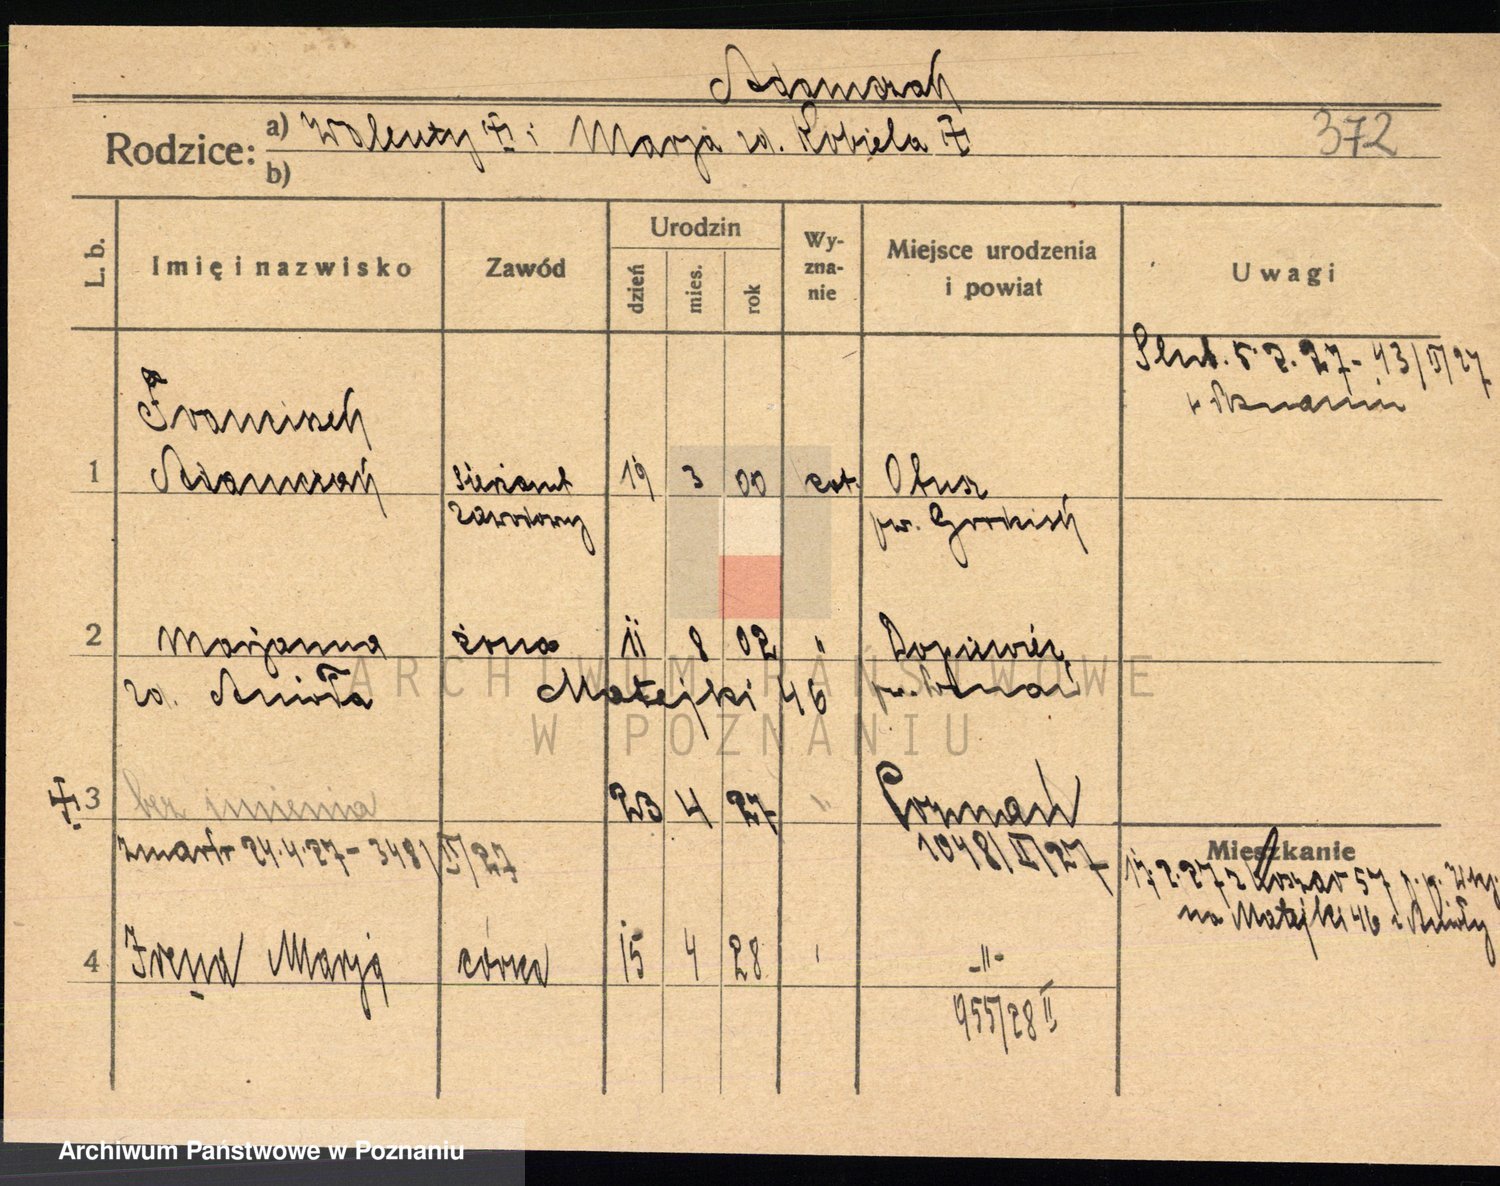 Adamczak
Rodzice: a) Walenty i Marja zd. Kobiela
372
b)
L. b.
Imię i nazwisko
Zawód
Urodzin
dzień
mies.
rok
Wy-
zna-
nie
Miejsce urodzenia
i powiat
Uwagi
Ślub. 5.2.27 - 43/II/27
w Poznaniu
Franciszek
1 Adamczak sierżant 19 3 00 kat. Obrza
zawodowy pw. Grodzisk
2 Marjanna żona 11 8 02 " Dopiewiec
zd. Anioła Matejki 46 pw. Poznań
3 bez imienia 23 4 27 " Poznań
zmarło 24.4.27 - 348/II/27 1048/II/27
Mieszkanie
17.2.27 z Koszar 57 p.p. Wlkp.
na Matejki 46 z Anioły
4 Irena Marja córka 15 4 28 ' -"-
955/28 II
ARCHIWUM PAŃSTWOWE
W POZNANIU
Archiwum Państwowe w Poznaniu